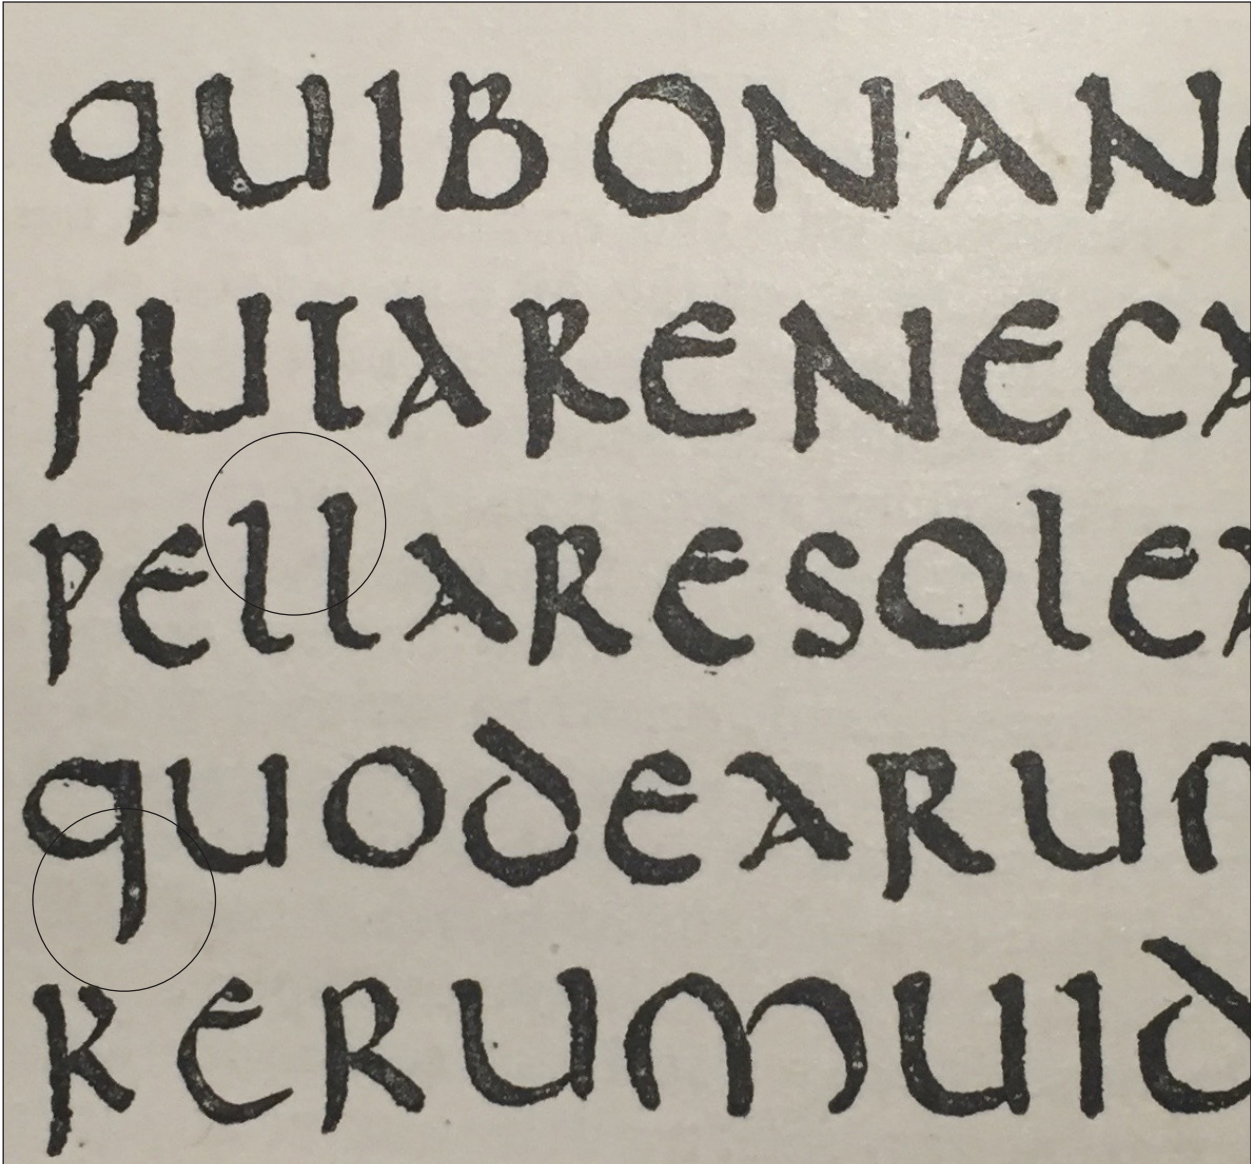 QUIBONAN
PUTARENECA
PELLARESOLEA
QUODEARUM
RERUMUID